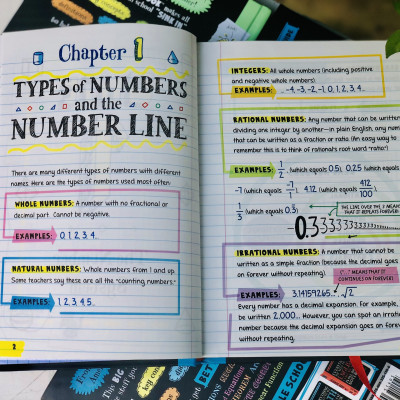 Chapter 1
TYPES of NUMBERS
and the
NUMBER LINE
There are many different types of numbers with different
names. Here are the types of numbers used most often:
WHOLE NUMBERS: A number with no fractional or
decimal part. Cannot be negative.
EXAMPLES: 0, 1, 2, 3, 4...
NATURAL NUMBERS: Whole numbers from 1 and up.
Some teachers say these are all the "counting numbers."
EXAMPLES: 1, 2, 3, 4, 5...
2
INTEGERS: All whole numbers (including positive
and negative whole numbers).
EXAMPLES: ...-4, -3, -2, -1, 0, 1, 2, 3, 4...
RATIONAL NUMBERS: Any number that can be written
dividing one integer by another—in plain English, any num
that can be written as a fraction or ratio. (An easy way to
remember this is to think of rational's root word "ratio.")
EXAMPLES: 1/2 (which equals 0.5), 0.25 (which equals
-7 (which equals -7/1), 4.12 (which equals 412/100)
1/3 (which equals 0.3)
THE LINE OVER THE 3 MEANS
THAT IT REPEATS FOREVER!
0.333333333333
IRRATIONAL NUMBERS: A number that cannot be
written as a simple fraction (because the decimal goes
on forever without repeating).
"..." MEANS THAT IT
CONTINUES ON FOREVER!
EXAMPLES: 3.14159265..., √2
Every number has a decimal expansion. For example,
be written 2.000... However, you can spot an irratio
number because the decimal expansion goes on forev
without repeating.
This BIG